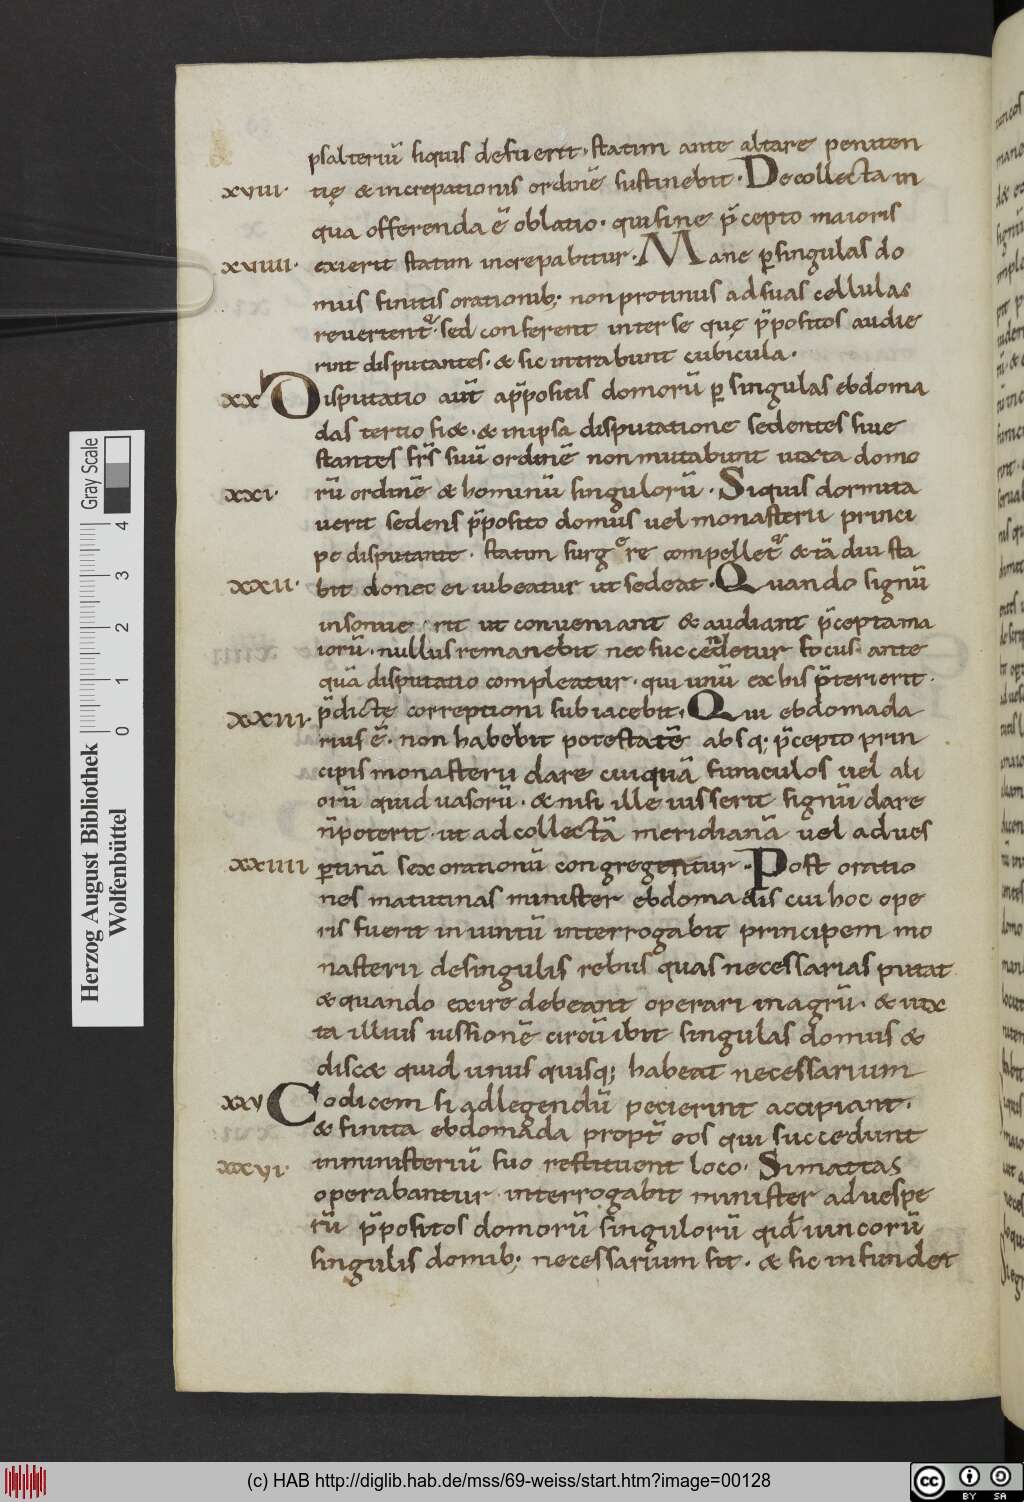 psalteriū siquis defuerit · statim ante altare peniten
xviii · tię & increpationis ordinē sustinebit · Decollecta in
qua offerenda ē oblatio · quisine p̄cepto maioris
xviiii · exierit statim increpabitur · Mane ꝑsingulas do
mus finitis orationib; non protinus adsuas cellulas
revertent᷑ · sed conferent inter se quę p̄positos audie
rint disputantes · & sic intrabunt cubicula ·
xx Disputatio aut̄ ap̄positis domorū ꝑ singulas ebdoma
das tertio fi& · & inipsa disputatione sedentes siue
stantes fr̄s suū ordinē non mutabunt iuxta domo
xxi · rū ordinē & hominū singulorū · Siquis dormita
uerit sedens p̄posito domus uel monasterii princi
pe disputante · statim surgere compellet᷑ & tā diu sta
xxii · bit donec ei iubeatur ut sedeat · Quando signū
insonue rit ut conueniant & audiant p̄cepta ma
iorū · nullus remanebit nec succendetur focus ante
quā disputatio compleatur · qui unū ex his p̄terierit ·
xxiii · p̄dictę correptioni subiacebit · Qui ebdomada
rius ē · non habebit potestatē absq; p̄cepto prin
cipis monasterii dare cuiquā funiculos uel ali
orū quid uasorū · & nisi ille iusserit signū dare
n̄poterit · ut ad collectā meridianā uel ad ues
xxiiii ꝑtinā sex orationū congregentur · Post oratio
nes matutinas minister ebdomadis cui hoc ope
ris fuerit iniunctū interrogabit principem mo
nasterii desingulis rebus quas necessarias putat
& quando exire debeant operari in agrū · & iux
ta illius iussionē circū ibit singulas domus &
disc& quid unus quisq; habeat necessarium
xxv Codicem si adlegendū pecierint accipiant ·
& finita ebdomada propt̄ eos qui succedunt
xxvi · inministeriū suo restituent loco · Simattas
operabantur interrogabit minister ad uespe
rū p̄positos domorū singulorū qid iuncorū
singulis domib; necessarium sit · & sic infundet
Herzog August Bibliothek
Wolfenbüttel
Gray Scale
0 1 2 3 4
(c) HAB http://diglib.hab.de/mss/69-weiss/start.htm?image=00128
cc BY SA